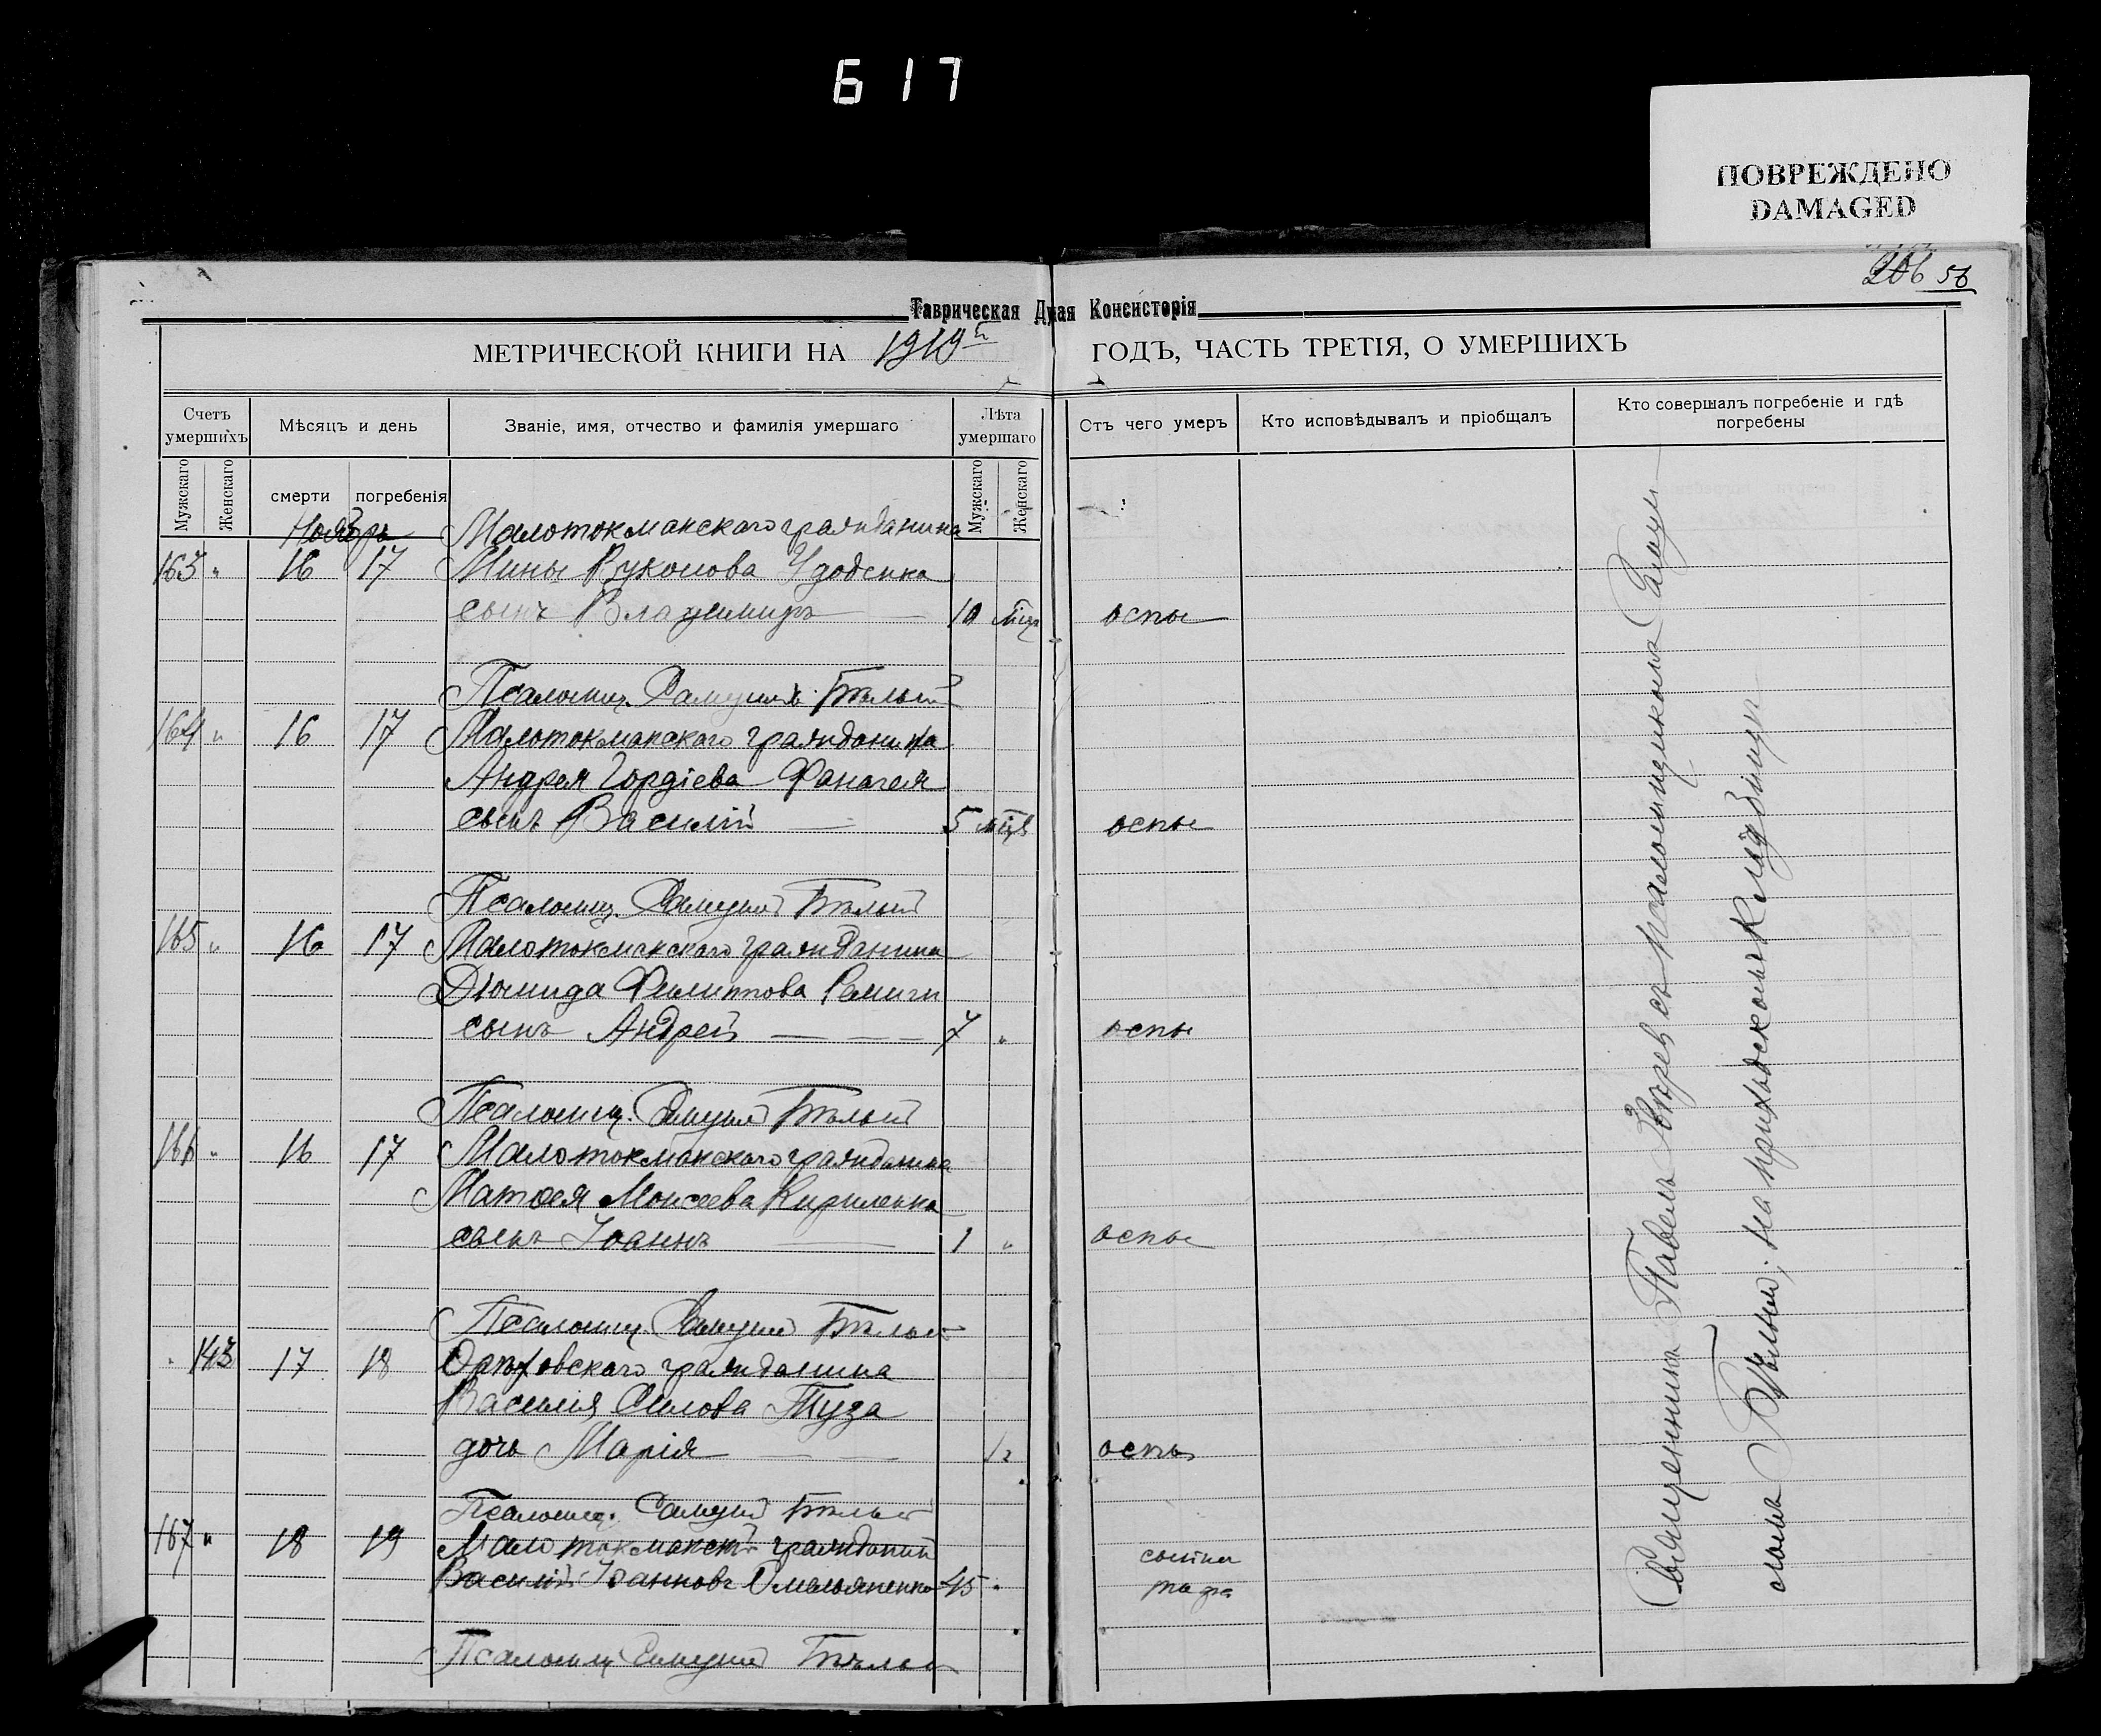 617
ПОВРЕЖДЕНО
DAMAGED
206 56
Таврическая Дная Консисторія
МЕТРИЧЕСКОЙ КНИГИ НА 1919й ГОДЪ, ЧАСТЬ ТРЕТІЯ, О УМЕРШИХЪ
Счетъ умершихъ
Мѣсяцъ и день
Званіе, имя, отчество и фамилія умершаго
Лѣта умершаго
Отъ чего умеръ
Кто исповѣдывалъ и пріобщалъ
Кто совершалъ погребеніе и гдѣ погребены
Мужскаго
Женскаго
смерти
погребенія
Мужскаго
Женскаго
Ноябрь
Малотокмакскаго гражданина
163 " 16 17 Мины Вуколова Удоденка
сынъ Владимиръ — 10 мцъ оспы
Псаломщ. Самуилъ Бѣлый
164 " 16 17 Малотокмакскаго гражданина
Андрея Гордіева Фанагея
сынъ Василій — 5 мцв оспы
Псаломщ. Самуилъ Бѣлый
165 " 16 17 Малотокмакскаго гражданина
Діомида Филиппова
сынъ Андрей — 7 " оспы
Псаломщ. Самуилъ Бѣлый
166 " 16 17 Малотокмакскаго гражданина
Матѳея Моисеева Кириленка
сынъ Іоаннъ — 1 " оспы
Псаломщ. Самуилъ Бѣлый
" 143 17 18 Орѣховскаго гражданина
Василія Силова Туза
дочь Марія — 1/2 оспы
Псаломщ. Самуилъ Бѣлый
167 " 18 19 Малотокмакскій гражданинъ
Василій Іоанновъ Омельяненко 45 "
Псаломщ. Самуилъ Бѣлый
Священникъ Павелъ съ псаломщикомъ
Бѣлымъ; на приходскомъ кладбищѣ